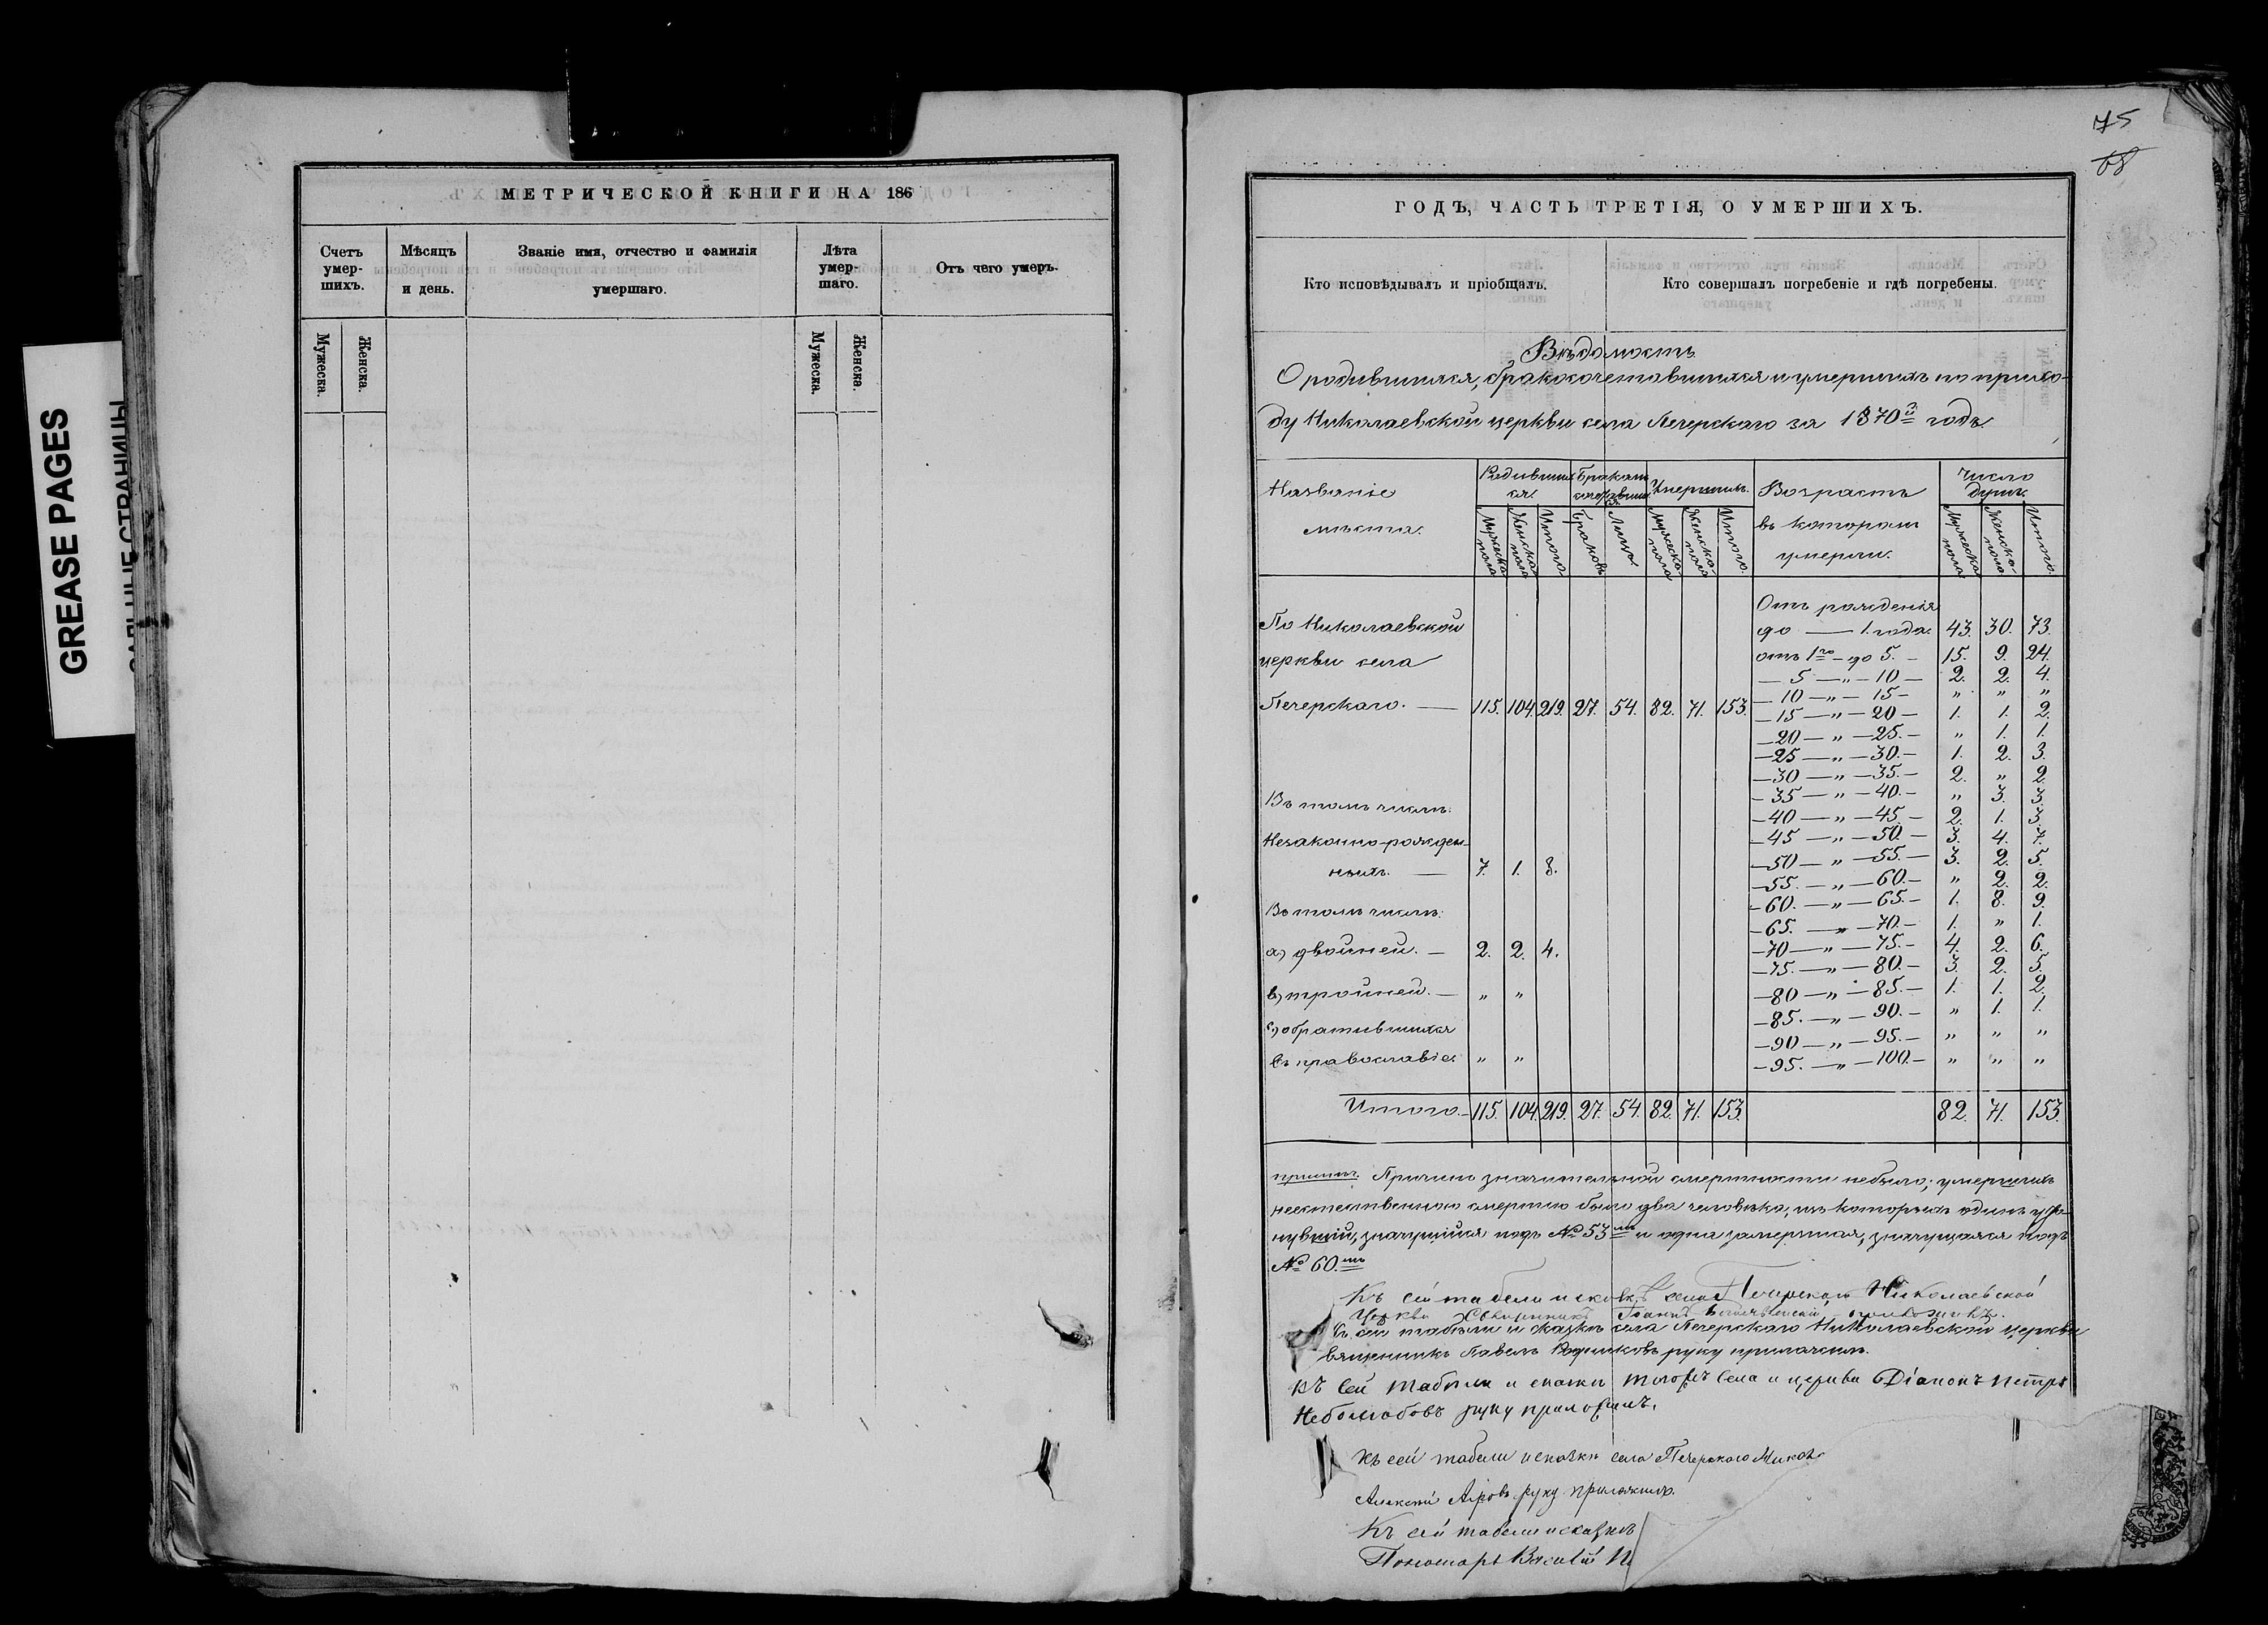 GREASE PAGES
САЛЬНЫЕ СТРАНИЦЫ
МЕТРИЧЕСКОЙ КНИГИ НА 186
Счетъ умер- шихъ.
Мѣсяцъ и день.
Званіе имя, отчество и фамилія умершаго.
Лѣта умер- шаго.
Отъ чего умеръ.
Мужеска. Женска. Мужеска. Женска.
75
68
ГОДЪ, ЧАСТЬ ТРЕТІЯ, О УМЕРШИХЪ.
Кто исповѣдывалъ и пріобщалъ.
Кто совершалъ погребеніе и гдѣ погребены.
Вѣдомость
О родившихся, бракосочетавшихся и умершихъ по прихо-
ду Николаевской церкви села Печерскаго за 1870й годъ
Названіе мѣста.
Родивших ся.
Бракомъ
Умершихъ.
Возрастъ въ которомъ умерли.
Число душъ.
Мужеска пола Женска пола Итого Браковъ Лицъ Мужеска пола Женска пола Итого. Мужеска пола Женска пола Итого.
Отъ рожденія
По Николаевской
до — 1. года. 43. 30. 73.
церкви села
отъ 1го — до 5. — 15. 9. 24.
— 5 — „ — 10 — 2. 2. 4.
— 10 — „ — 15 — „ „ „
Печерскаго. — 115. 104. 219. 27. 54. 82. 71. 153.
— 15 — „ — 20 — 1. 1. 2.
— 20 — „ — 25. — „ 1. 1.
— 25 — „ — 30. — 1. 2. 3.
— 30 — „ — 35. — 2. „ 2.
Въ томъ числѣ:
— 35 — „ — 40. — „ 3. 3.
— 40 — „ — 45. — 2. 1. 3.
Незаконно-рожден-
— 45 — „ — 50. — 3. 4. 7.
ныхъ. — 7. 1. 8.
— 50 — „ — 55. — 3. 2. 5.
— 55. — „ — 60. — „ 2. 2.
Въ томъ числѣ:
— 60. — „ — 65. — 1. 8. 9.
— 65. — „ — 70. — 1. „ 1.
а) двойней. — 2. 2. 4.
— 70 — „ — 75. — 4. 2. 6.
— 75. — „ — 80. — 3. 2. 5.
в) тройней. — „ „
— 80 — „ — 85. — 1. 1. 2.
— 85. — „ — 90. — „ 1. 1.
с) обратившихся
— 90 — „ — 95. — „ „ „
въ православіе. „ „
— 95. — „ — 100. — „ „ „
Итого. — 115. 104. 219. 27. 54. 82. 71. 153. 82. 71. 153.
примѣч. Причинъ значительной смертности небыло; умершихъ
неестественною смертію было два человѣка, изъ которыхъ одинъ уто-
нувшій, значущійся подъ № 53мъ и одна замершая, значущаяся подъ
№ 60.мъ
Къ сей табели и сказкѣ села Печерскаго Николаевской
Церкви Священникъ Іоаннъ
Къ сей табели и сказкѣ села Печерскаго Николаевской церкви
священникъ Павелъ руку приложилъ.
Къ сей табели и сказки тогожъ села и церкви Діаконъ Петръ
Неболюбовъ руку приложилъ.
Къ сей табели и сказки села Печерскаго
Алексѣй руку приложилъ.
Къ сей табели и сказкѣ
Пономарь Василій